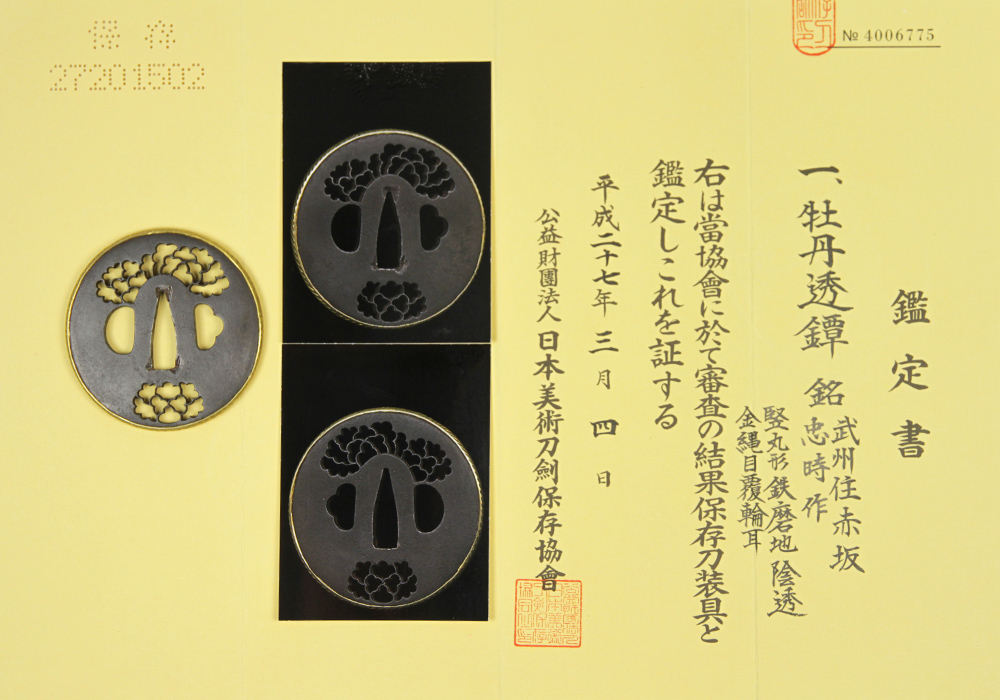 保存
27201502
№ 4006775
鑑定書
一、牡丹透鐔 銘 武州住赤坂
忠時作
竪丸形鉄磨地 陰透
金縄目覆輪耳
右は當協會に於て審査の結果保存刀装具と
鑑定しこれを証する
平成二十七年三月四日
公益財團法人 日本美術刀劍保存協會